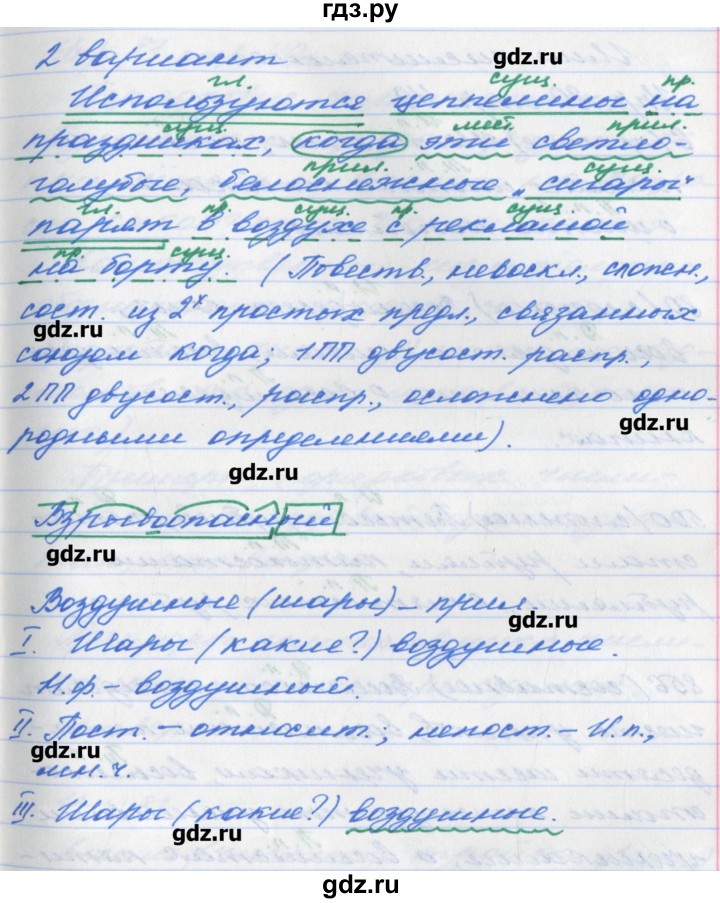 гдз.ру
2 вариант
gdz.ru
гл. сущ. пр.
Используются цеппелины на
сущ. мест. прил.
праздниках, когда эти светло-
прил. сущ.
голубые, белоснежные „сигары"
гл. пр. сущ. пр. сущ.
парят в воздухе с рекламой
пр. сущ.
на борту. (Повеств., невоскл., сложн.,
сост. из 2х простых предл., связанных
gdz.ru
союзом когда; 1ПП двусост. распр.,
2 ПП двусост., распр., осложнено одно-
gdz.ru
родными определениями).
gdz.ru
Взрывоопасный
gdz.ru
Воздушные (шары) – прил.
gdz.ru
I. Шары (какие?) воздушные.
Н.ф. – воздушный.
II. Пост. – относит.; непост. – И.п.,
gdz.ru
мн.ч.
III. Шары (какие?) воздушные.
gdz.ru
gdz.ru